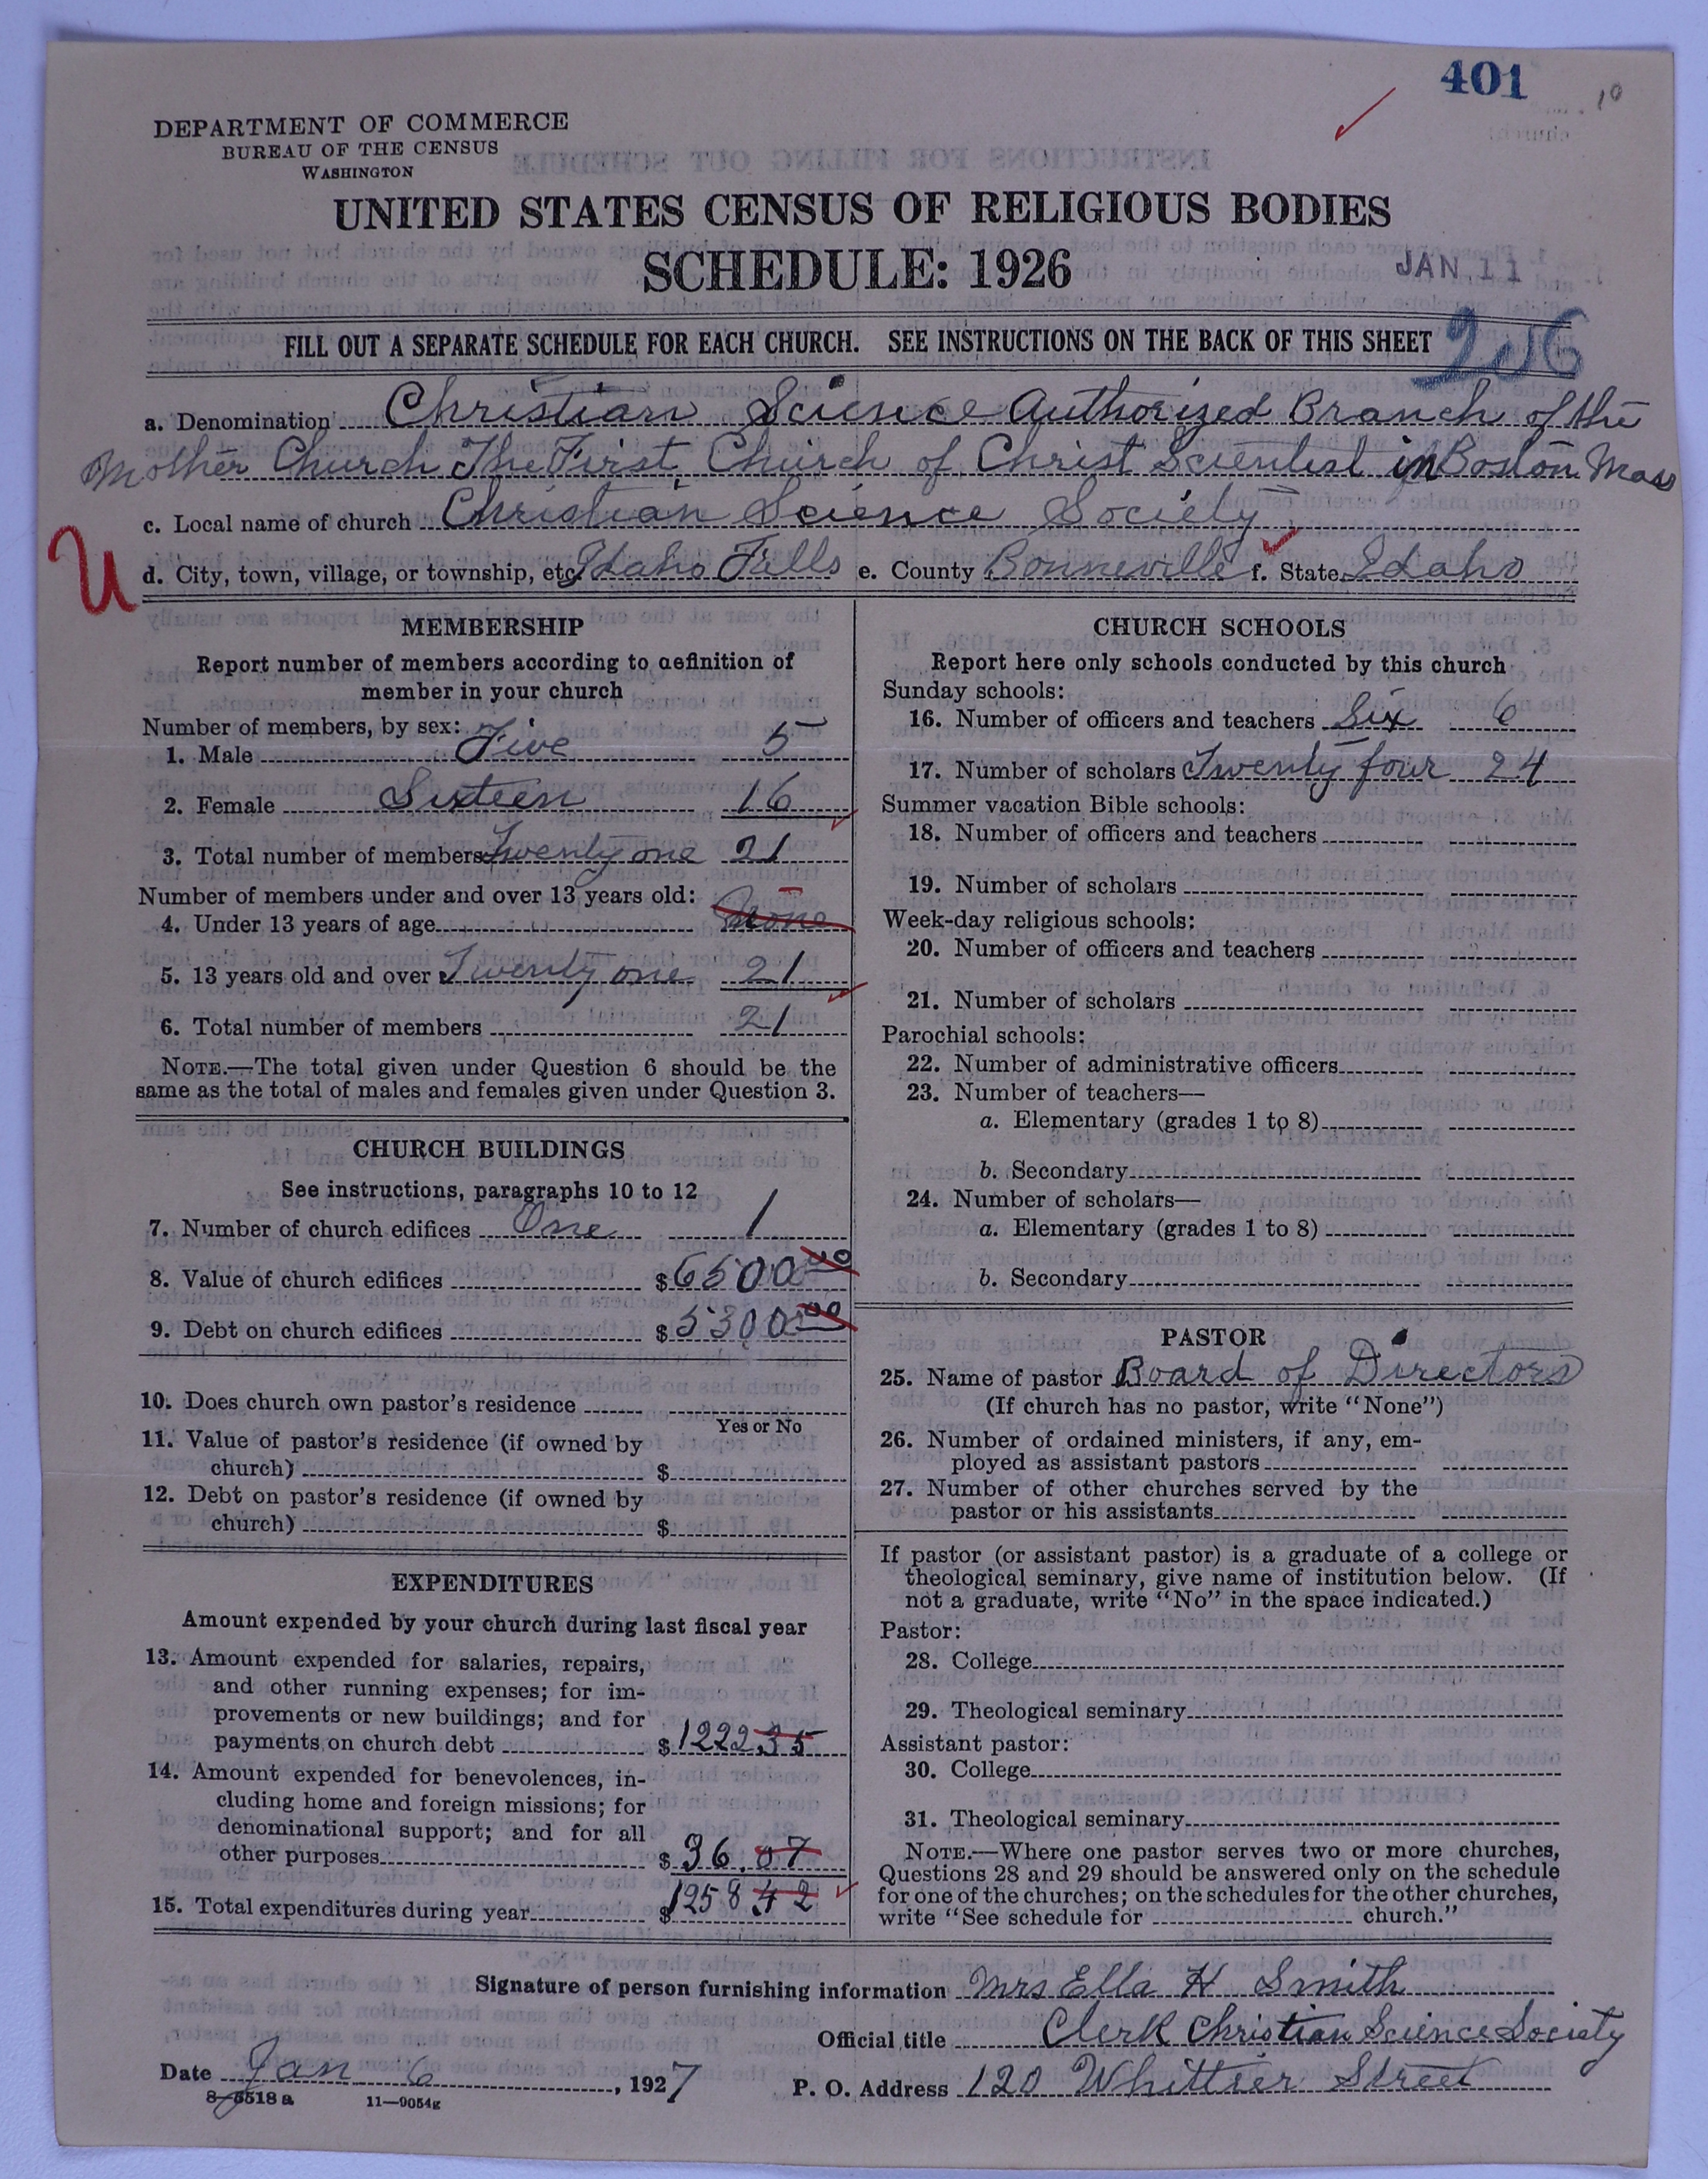 401
DEPARTMENT OF COMMERCE
BUREAU OF THE CENSUS
WASHINGTON
UNITED STATES CENSUS OF RELIGIOUS BODIES
SCHEDULE: 1926
JAN 11
FILL OUT A SEPARATE SCHEDULE FOR EACH CHURCH. SEE INSTRUCTIONS ON THE BACK OF THIS SHEET
a. Denomination Christian Science Authorized Branch of the
Mother Church The First Church of Christ Scientist in Boston Mass
c. Local name of church Christian Science Society
U
d. City, town, village, or township, etc. Idaho Falls e. County Bonneville f. State Idaho
MEMBERSHIP
Report number of members according to definition of
member in your church
Number of members, by sex:
1. Male Five 5
2. Female Sixteen 16
3. Total number of members Twenty one 21
Number of members under and over 13 years old:
4. Under 13 years of age None
5. 13 years old and over Twenty one 21
6. Total number of members 21
NOTE.—The total given under Question 6 should be the
same as the total of males and females given under Question 3.
CHURCH BUILDINGS
See instructions, paragraphs 10 to 12
7. Number of church edifices One 1
8. Value of church edifices $ 6500 00
9. Debt on church edifices $ 5300 00
10. Does church own pastor's residence
Yes or No
11. Value of pastor's residence (if owned by
church) $
12. Debt on pastor's residence (if owned by
church) $
EXPENDITURES
Amount expended by your church during last fiscal year
13. Amount expended for salaries, repairs,
and other running expenses; for im-
provements or new buildings; and for
payments on church debt $ 1222.35
14. Amount expended for benevolences, in-
cluding home and foreign missions; for
denominational support; and for all
other purposes $ 36.07
15. Total expenditures during year $ 1258.42
CHURCH SCHOOLS
Report here only schools conducted by this church
Sunday schools:
16. Number of officers and teachers Six 6
17. Number of scholars Twenty four 24
Summer vacation Bible schools:
18. Number of officers and teachers
19. Number of scholars
Week-day religious schools:
20. Number of officers and teachers
21. Number of scholars
Parochial schools:
22. Number of administrative officers
23. Number of teachers—
a. Elementary (grades 1 to 8)
b. Secondary
24. Number of scholars—
a. Elementary (grades 1 to 8)
b. Secondary
PASTOR
25. Name of pastor Board of Directors
(If church has no pastor, write "None")
26. Number of ordained ministers, if any, em-
ployed as assistant pastors
27. Number of other churches served by the
pastor or his assistants
If pastor (or assistant pastor) is a graduate of a college or
theological seminary, give name of institution below. (If
not a graduate, write "No" in the space indicated.)
Pastor:
28. College
29. Theological seminary
Assistant pastor:
30. College
31. Theological seminary
NOTE.—Where one pastor serves two or more churches,
Questions 28 and 29 should be answered only on the schedule
for one of the churches; on the schedules for the other churches,
write "See schedule for church."
Signature of person furnishing information Mrs Ella H Smith
Official title Clerk Christian Science Society
Date Jan 6, 1927
P. O. Address 120 Whittier Street
8-5518 a 11—9054g